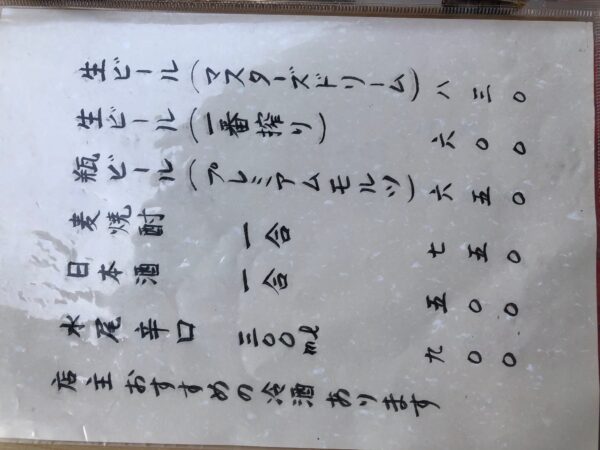 生ビール(マスターズドリーム) 八三〇
生ビール(一番搾り) 六〇〇
瓶ビール(プレミアムモルツ) 六五〇
麦焼酎 一合 七五〇
日本酒 一合 五〇〇
水尾辛口 三〇〇ml 九〇〇
店主おすすめの冷酒あります